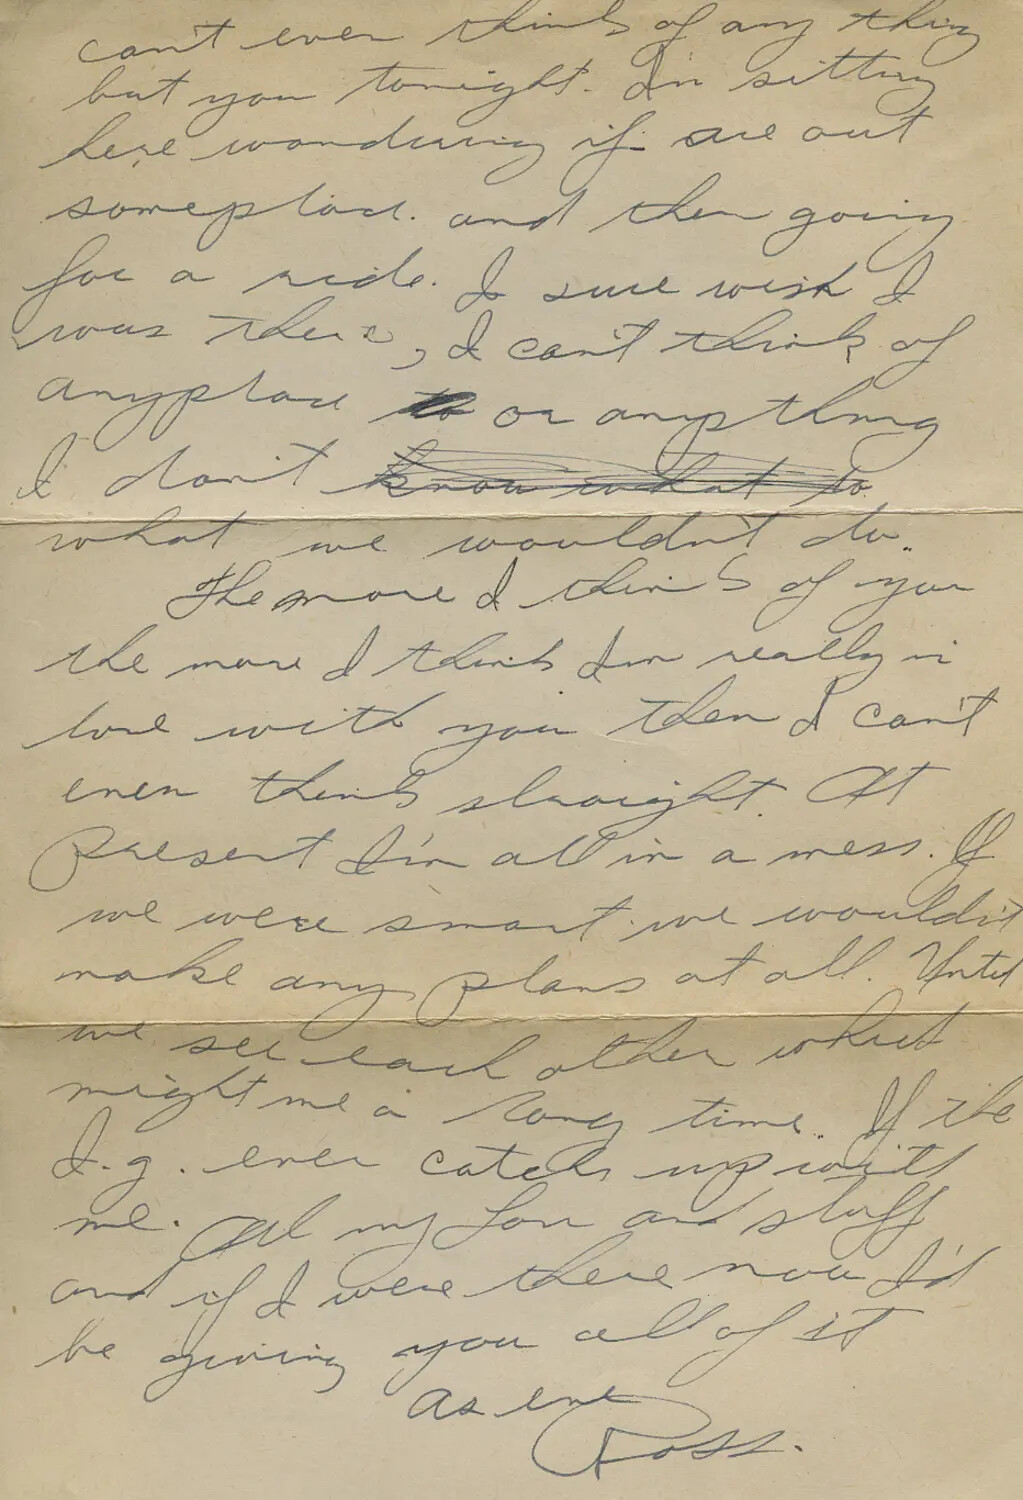 can't even think of any thing
but you tonight. I'm sitting
here wondering if are out
someplace. and then going
for a ride. I sure wish I
was there, I can't think of
anyplace to or anything
I don't know what to
what we wouldn't do.
The more I think of you
the more I think I'm really in
love with you then I can't
even think straight. At
present I'm all in a mess. If
we were smart we wouldn't
make any plans at all. Until
we see each other which
might me a long time. If the
I.g. ever catch up with
me. All my love and stuff
and if I were there now I'd
be giving you all of it
As ever
Ross.